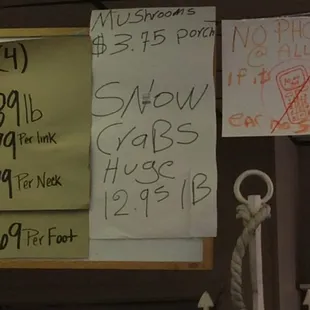 (4)
9 lb
9 Per link
9 Per Neck
69 Per Foot
Mushrooms
$3.75 porch
SNOW
CraBS
Huge
12.95 lB
NO PHO
@ ALL
If it's
ear